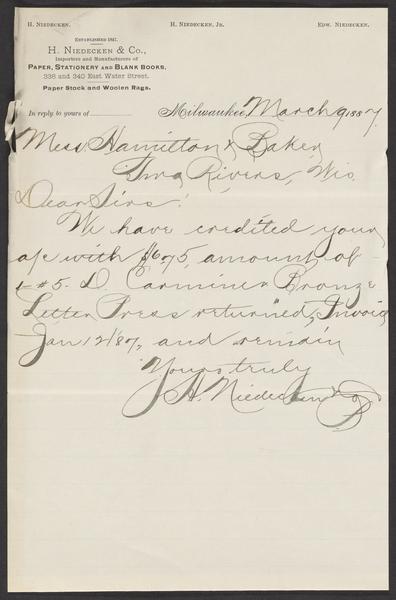 H. Niedecken. H. Niedecken, Jr. Edw. Niedecken.
Established 1847.
H. Niedecken & Co.,
Importers and Manufacturers of
Paper, Stationery and Blank Books,
338 and 340 East Water Street.
Paper Stock and Woolen Rags.
In reply to yours of Milwaukee, March 9 1887.
Mess. Hamilton & Baker
Two Rivers, Wis.
Dear Sirs:
We have credited your
a/c with $6.75, amount of
#5. D. Carmine Bronze
Letter Press returned, Invoice
Jan 12/87, and remain
Yours truly
H. Niedecken & Co